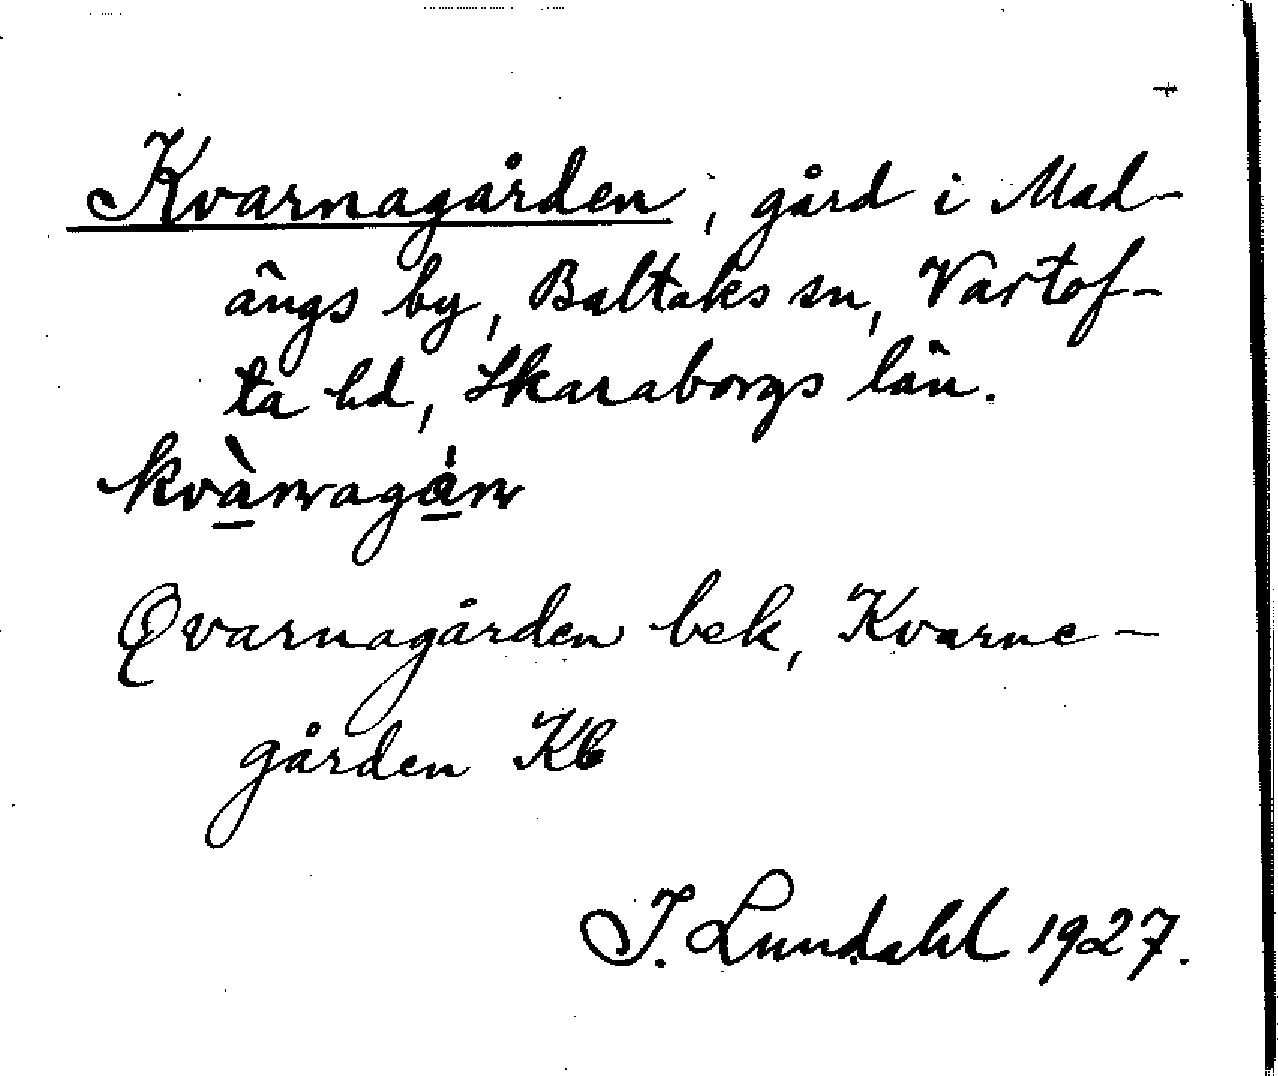 Kvarnagården, gård i Mad-
ängs by, Baltaks sn, Vartof-
ta hd, Skaraborgs län.
Qvarnagården bek, Kvarne-
gården Kb
I. Lundahl 1927.